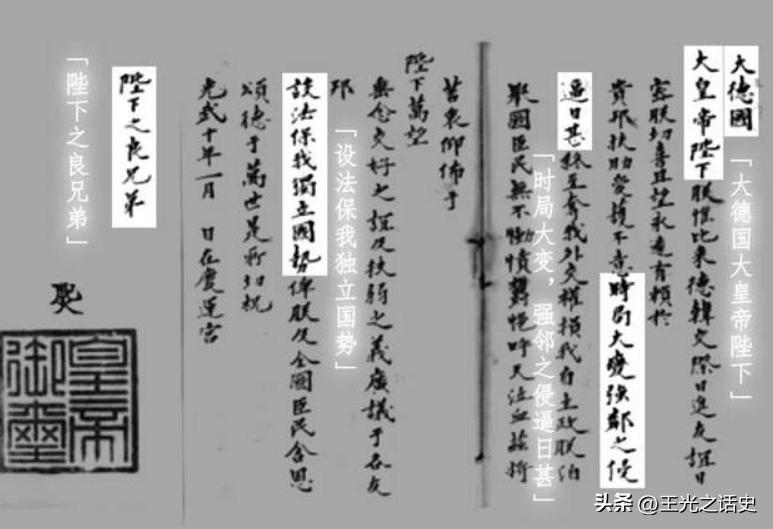 大德國
「大德国大皇帝陛下」
大皇帝陛下朕惟比来德韓交際日進友誼日
密朕切喜且望永遠有賴於
貴邦扶助愛護不意時局大變強鄰之侵
逼日甚終至奪我外交權損我自主政朕洎
擧國臣民無不慟憤鬱悒呼天泣血茲將
「时局大变，强邻之侵逼日甚」
苦衷仰佈于
陛下萬望
垂念交好之誼及扶弱之義廣議于各友
邦
「设法保我独立国势」
設法保我獨立國勢俾朕及全國臣民含恩
頌德于萬世是所切祝
光武十年一月 日在慶運宮
陛下之良兄弟
「陛下之良兄弟」
皇帝御璽
头条 @王光之话史